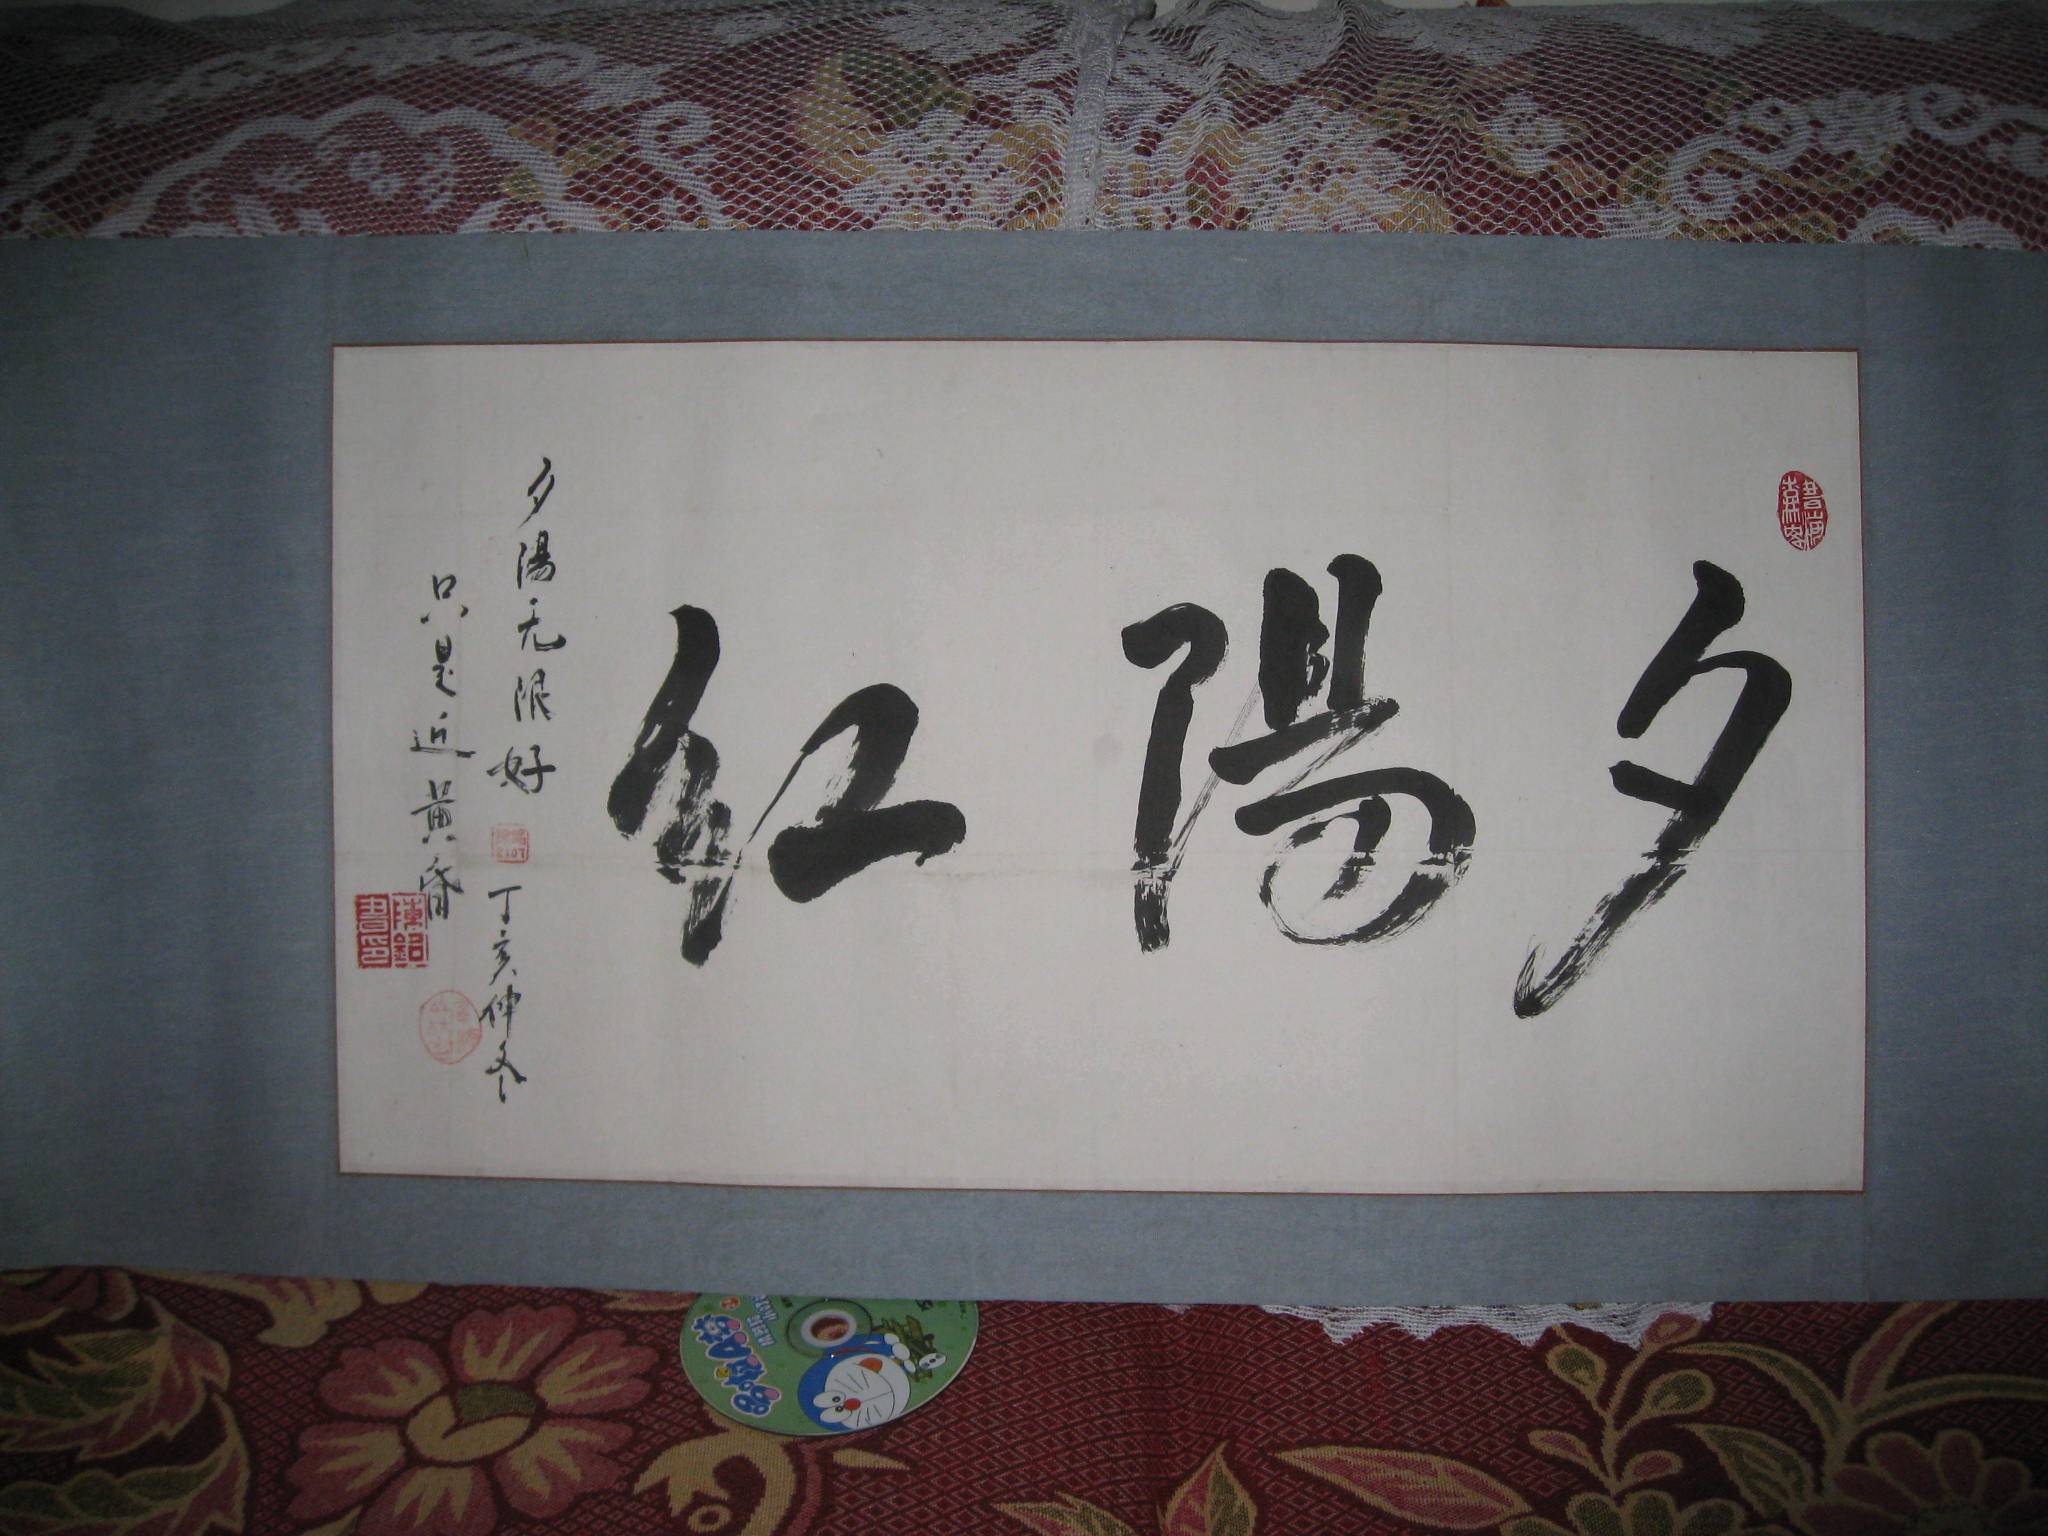 夕陽紅
夕陽无限好
丁亥仲冬
只是近黄昏